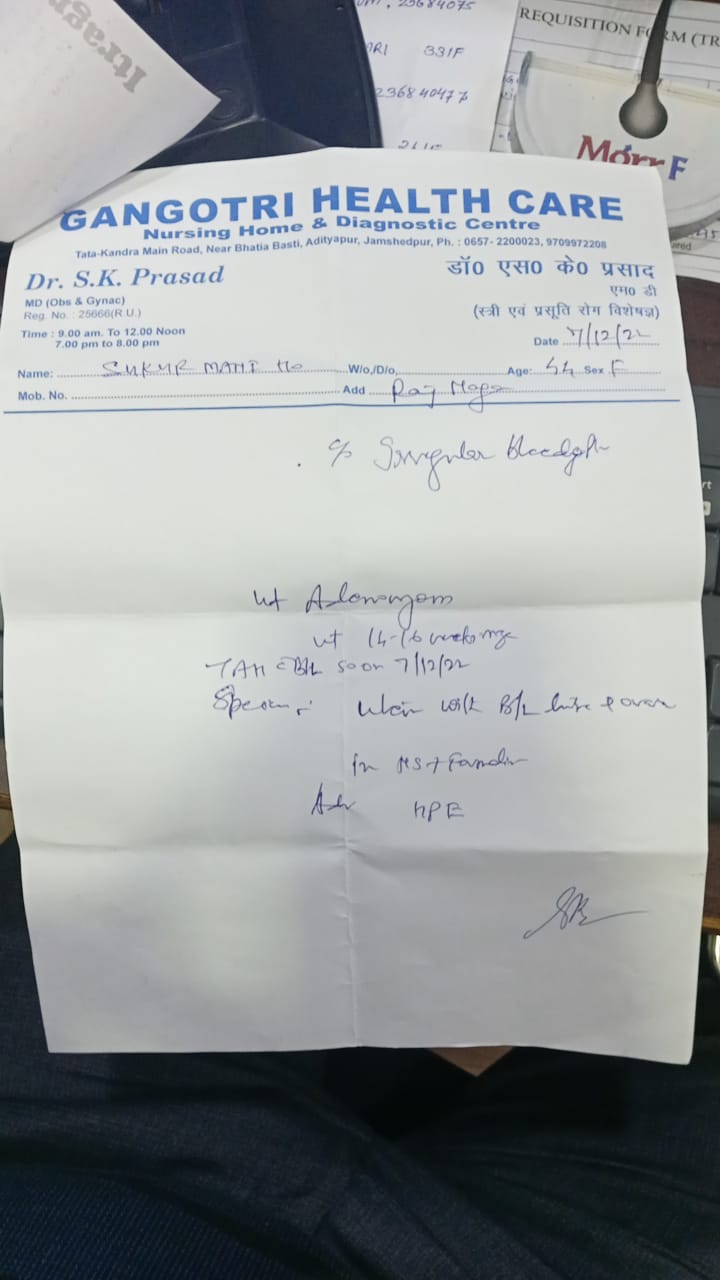 Itrag
23684075
ARI 331F
236840477
REQUISITION FORM (TR
GANGOTRI HEALTH CARE
Nursing Home & Diagnostic Centre
Tata-Kandra Main Road, Near Bhatia Basti, Adityapur, Jamshedpur, Ph. : 0657- 2200023, 9709972208
Dr. S.K. Prasad
MD (Obs & Gynac)
Reg. No. : 25666(R.U.)
Time : 9.00 am. To 12.00 Noon
7.00 pm to 8.00 pm
डॉ0 एस0 के0 प्रसाद
एम0 डी
(स्त्री एवं प्रसूति रोग विशेषज्ञ)
Date 7/12/22
Name: SUKUR MANI Ho W/o,/D/o, Age: 44 Sex F
Mob. No. Add Raj Naga
c/o Irregular bleeding
ut Adenomyosis
ut 14-16 weeks
TAH c B/L 7/12/22
Specimen: B/L
in
Adv HPE